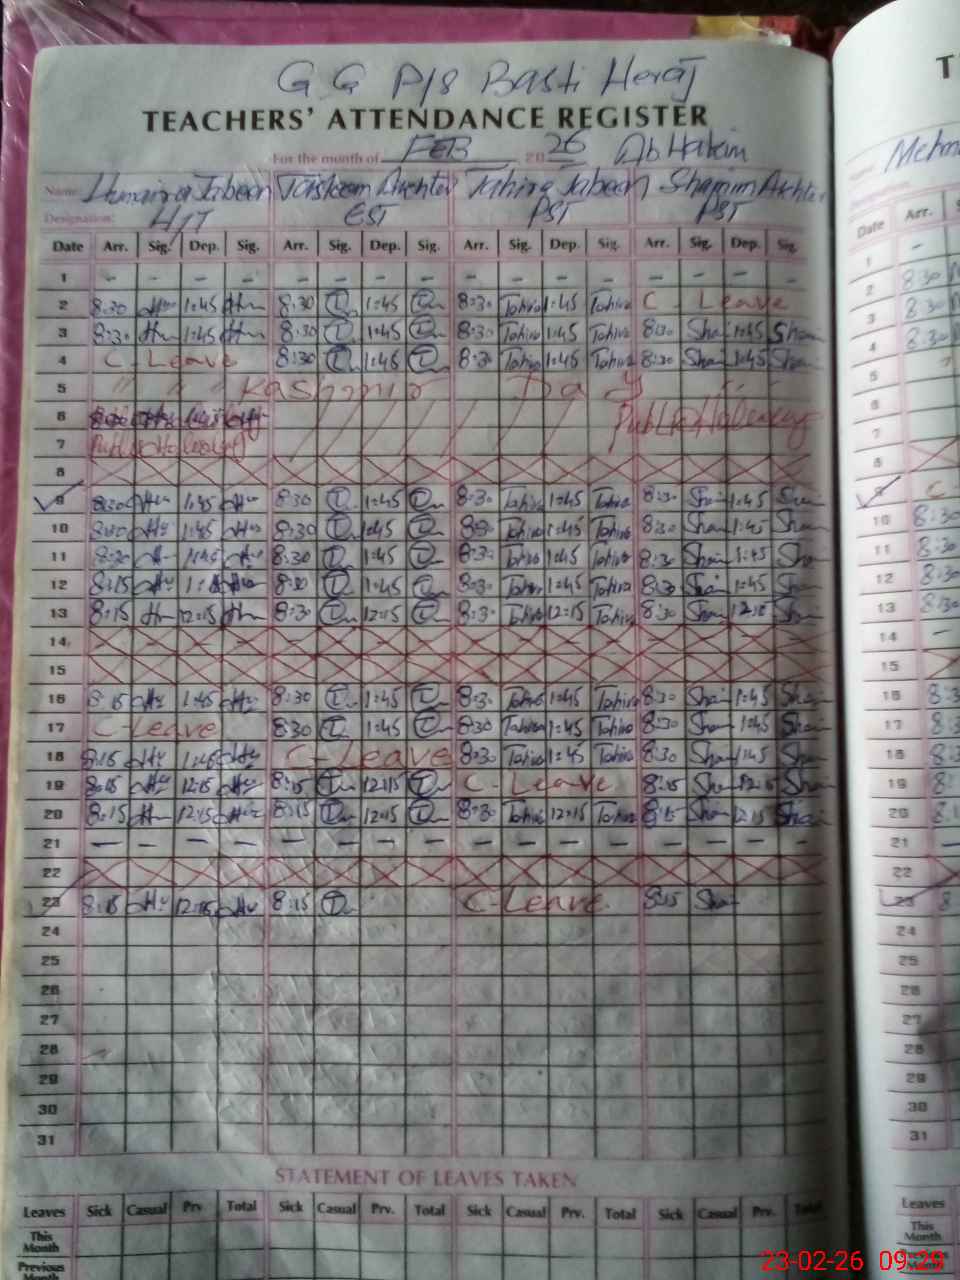 G.G P/S Basti Heraj
TEACHERS' ATTENDANCE REGISTER
For the month of FEB 2026 Ab Hakim
Name: Humaira Jabeen Tasleem Akhter Tahira Jabeen Shamim Akhter
Designation: H/T EST PST PST
Date Arr. Sig. Dep. Sig. Arr. Sig. Dep. Sig. Arr. Sig. Dep. Sig. Arr. Sig. Dep. Sig.
1 - - - - - - - - - - - - - - -
2 8:30 1:45 8:30 1:45 8:30 Tahira 1:45 Tahira C - Leave
3 8:30 1:45 8:30 1:45 8:30 Tahira 1:45 Tahira 8:30 Sham 1:45 Sham
4 C - Leave 8:30 1:45 8:30 Tahira 1:45 Tahira 8:30 Sham 1:45 Sham
5 Kashmir Day
6 Public Holeday
7 Public Holeday
8
9 8:30 1:45 8:30 1:45 8:30 Tahira 1:45 Tahira 8:30 Sham 1:45 Sham
10 8:30 1:45 8:30 1:45 8:30 Tahira 1:45 Tahira 8:30 Sham 1:45 Sham
11 8:30 1:45 8:30 1:45 8:30 Tahira 1:45 Tahira 8:30 Sham 1:45 Sham
12 8:15 8:30 1:45 8:30 Tahira 1:45 Tahira 8:30 Sham 1:45 Sham
13 8:15 12:15 8:30 12:15 8:30 Tahira 12:15 Tahira 8:30 Sham Sham
14
15
16 8:15 1:45 8:30 1:45 8:30 Tahira 1:45 Tahira 8:30 Sham 1:45 Sham
17 C - Leave 8:30 1:45 8:30 Tahira 1:45 Tahira 8:30 Sham 1:45 Sham
18 8:15 1:45 C - Leave 8:30 Tahira 1:45 Tahira 8:30 Sham 1:45 Sham
19 8:15 12:15 8:15 12:15 C - Leave 8:15 Sham 12:15 Sham
20 8:15 12:15 8:15 12:15 8:30 Tahira 12:15 Tahira 8:15 Sham 12:15 Sham
21 - - - - - - - - - - - - - - - -
22
23 8:15 12:15 8:15 C - Leave 8:15 Sham
24
25
26
27
28
29
30
31
STATEMENT OF LEAVES TAKEN
Leaves Sick Casual Prv Total Sick Casual Prv. Total Sick Casual Prv. Total Sick Casual Prv. Total
This Month
Previous Month
Date Arr.
1 -
2 8:30
3 8:30
4 8:30
5
6
7
8
9 C
10 8:30
11 8:30
12 8:30
13 8:30
14 -
15
16
17
18
19
20
21 -
22
23 8
24
25
26
27
28
29
30
31
Leaves
This Month
Previous Month
23-02-26 09:29